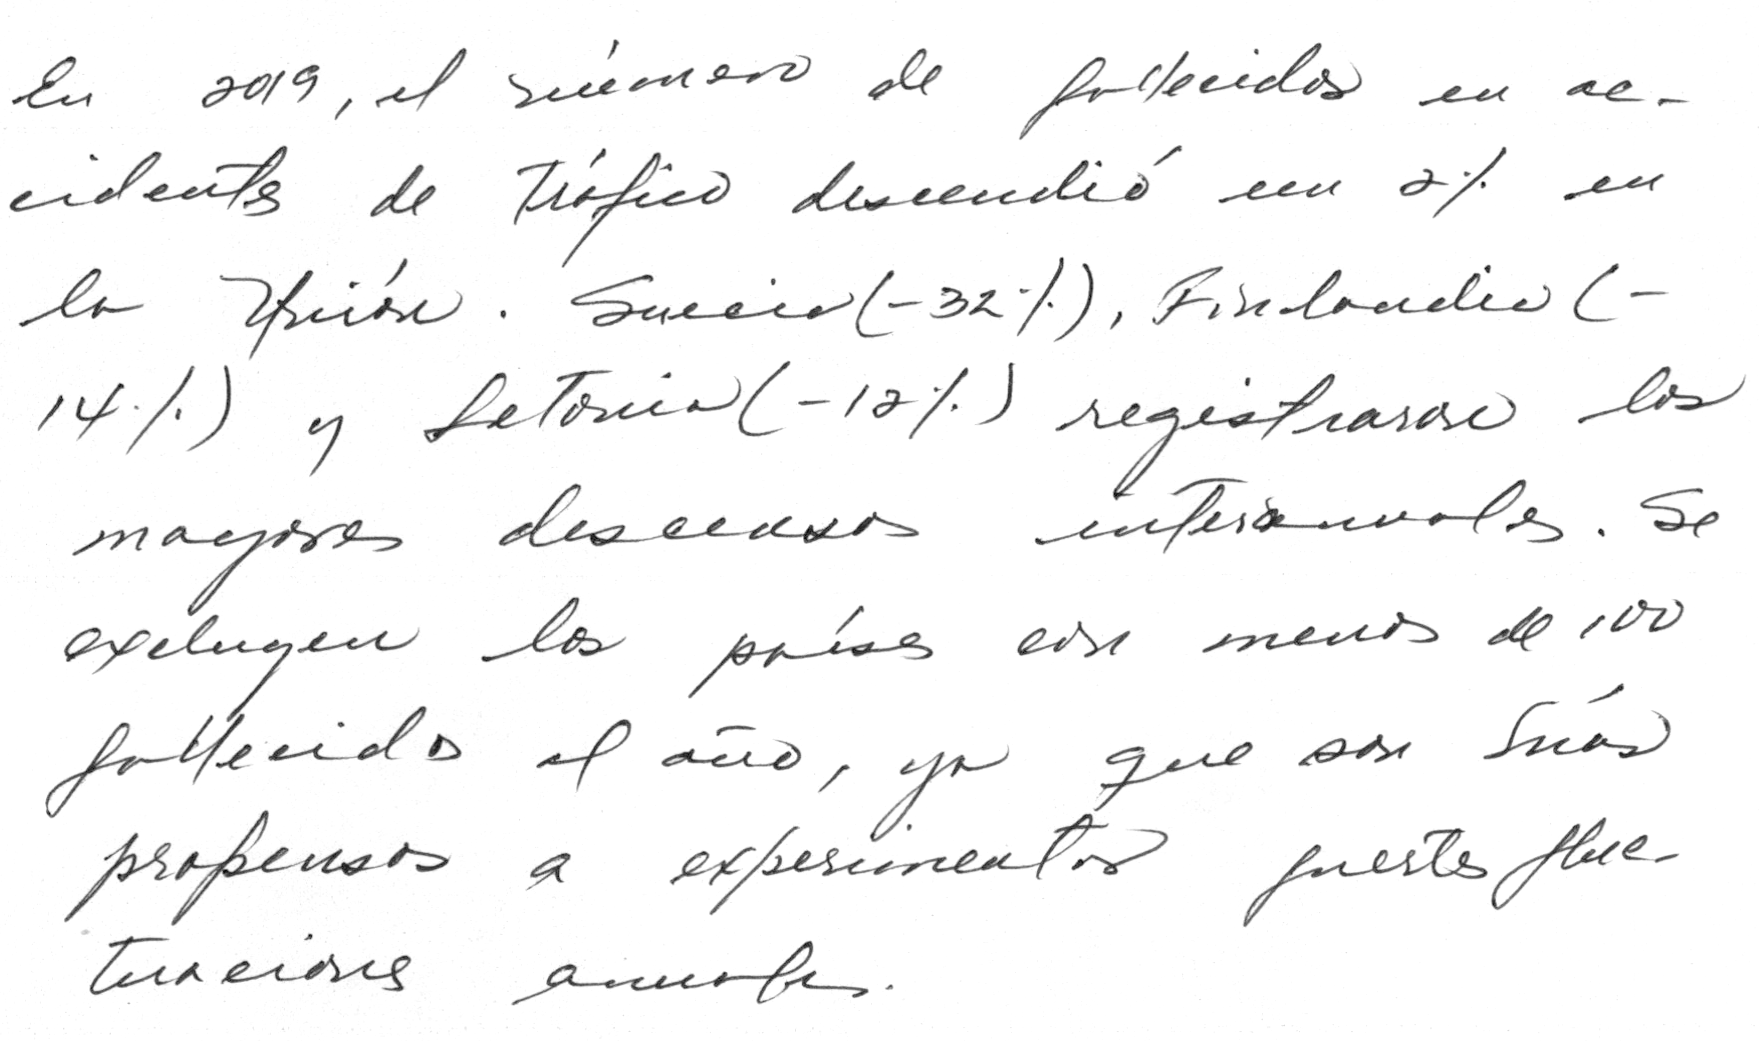 En 2019, el número de fallecidos en ac-
cidentes de tráfico descendió un 2% en
la Unión. Suecia (-32%), Finlandia (-
14%) y Letonia (-12%) registraron los
mayores descensos interanuales. Se
excluyen los países con menos de 100
fallecidos al año, ya que son más
propensos a experimentar fuertes fluc-
tuaciones anuales.